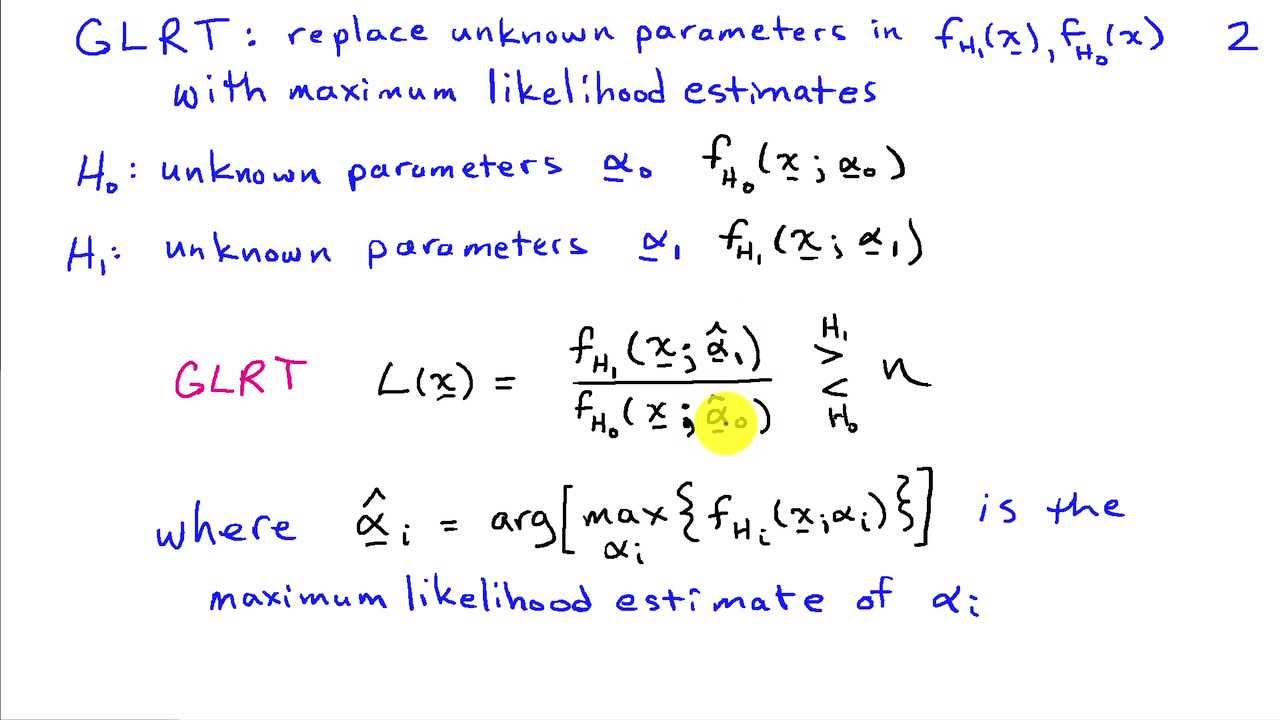 GLRT: replace unknown parameters in f_{H_1}(x̲), f_{H_0}(x) 2
with maximum likelihood estimates
H_0: unknown parameters α̲_0 f_{H_0}(x̲; α̲_0)
H_1: unknown parameters α̲_1 f_{H_1}(x̲; α̲_1)
GLRT L(x̲) = f_{H_1}(x̲; α̲̂_1) / f_{H_0}(x̲; α̲̂_0) H_1 > < H_0 n
where α̲̂_i = arg[max_{α_i}{f_{H_i}(x̲; α_i)}] is the
maximum likelihood estimate of α_i